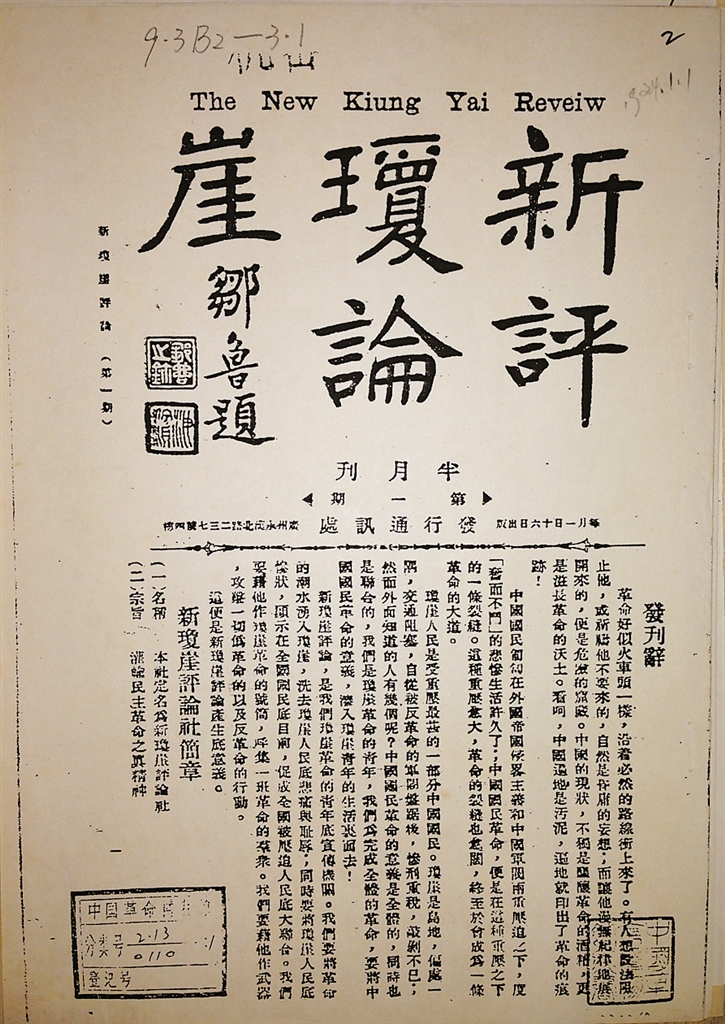 9·3B2—3·1
2
1924.1.1
The New Kiung Yai Reveiw
新瓊崖
評論
鄒魯題
新瓊崖評論（第一期）
半月刊
第一期
每月一日十六日出版
發行通訊處
廣州永漢北路二三七號四樓
發刊辭
革命好似火車頭一樣，沿着必然的路線衝上來了。有人想設法阻
止他，或祈禱他不要來的，自然是昏庸的妄想；而讓他漫無紀律地底
開來的，便是危險的窺覬。中國的現狀，不獨是醞釀革命的酒精，更
是滋長革命的沃土。看呵，中國遍地是汚泥，遍地就印出了革命的痕
跡！
中國國民匍匐在外國帝國侵畧主義和中國軍閥兩重壓迫之下，度
「奮而不鬥」的悲慘生活許久了；中國國民革命，便是在這種重壓之下
的一條裂縫。這種重壓愈大，革命的裂縫也愈闊，終至於會成爲一條
革命的大道。
瓊崖人民是受重壓最甚的一部分中國國民。瓊崖是島地，偏處一
隅，交通阻塞，自從被反革命的軍閥盤踞後，慘刑重稅，敲剝不已；
然而外面知道的人有幾個呢？中國國民革命的意義是全體的，同時也
是聯合的，我們是瓊崖革命的青年，我們爲完成全體的革命，要將中
國國民革命的意義，湊入瓊崖青年的生活裏面去！
新瓊崖評論，是我們瓊崖革命的青年底宣傳機關。我們要將革命
的潮水湧入瓊崖，洗去瓊崖人民底悲痛與恥辱；同時要將瓊崖人民底
慘狀，顯示在全國國民底目前，促成全國被壓迫人民底大聯合。我們
要藉他作瓊崖革命的號筒，呼集一班革命的羣衆。我們要藉他作武器
，攻擊一切僞革命的以及反革命的行動。
這便是新瓊崖評論產生底意義。
新瓊崖評論社簡章
（一）名稱　本社定名爲新瓊崖評論社
（二）宗旨　灌輸民主革命之眞精神
一
中國革命博
分类号 2·13
0110
登记号